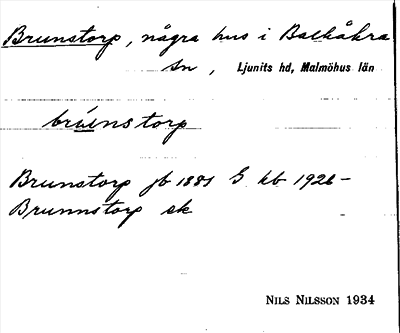 Brunstorp, några hus i Balkåkra
sn, Ljunits hd, Malmöhus län
brúnstorp
Brunstorp jb 1881 G kb 1926-
Brunnstorp ek
NILS NILSSON 1934